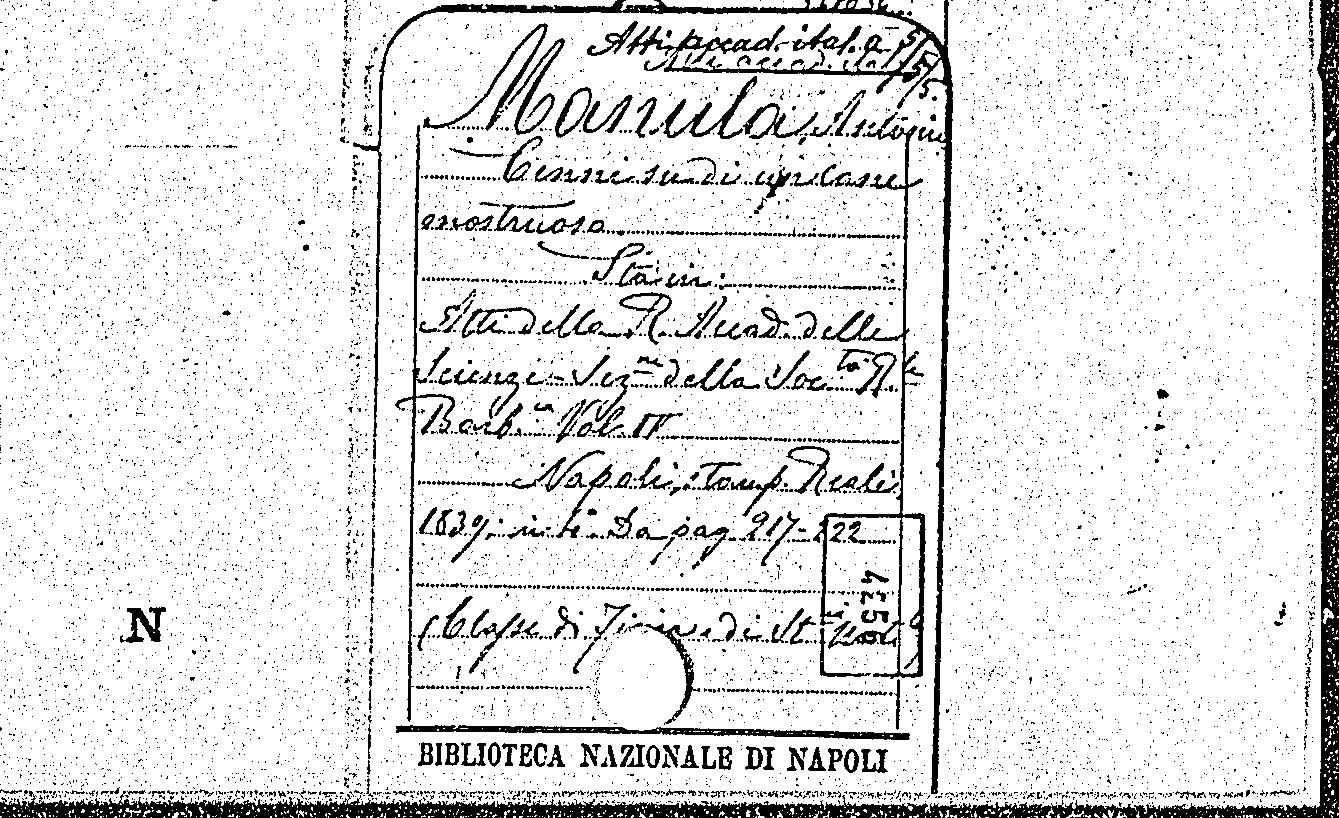 Atti accad. ital. a 5/5/5/5.
Manula, Antonio
Cenni su di un cane
mostruoso.
Sta in:
Atti della R. Accad. delle
Scienze - Sez.ne della Soc.tà R.le
Borb.ca Vol. IV
Napoli, stamp. Reale,
1839; in 4°. Da pag. 217-222
4256
(Classe di di St. Nat.)
N
BIBLIOTECA NAZIONALE DI NAPOLI